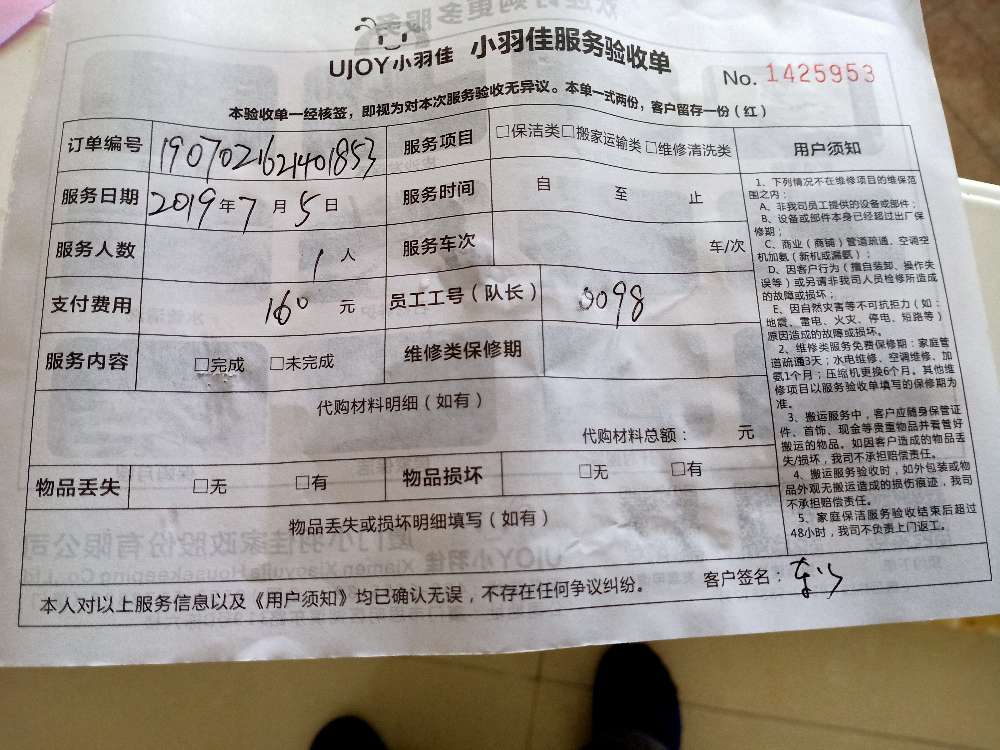 UJOY小羽佳 小羽佳服务验收单
No. 1425953
本验收单一经核签，即视为对本次服务验收无异议。本单一式两份，客户留存一份（红）
订单编号 1907021621401853 服务项目 □保洁类□搬家运输类□维修清洗类
服务日期 2019年7月5日 服务时间 自 至 止
服务人数 1人 服务车次 车/次
支付费用 160元 员工工号（队长） 0098
服务内容 □完成 □未完成 维修类保修期
代购材料明细（如有）
代购材料总额： 元
物品丢失 □无 □有 物品损坏 □无 □有
物品丢失或损坏明细填写（如有）
本人对以上服务信息以及《用户须知》均已确认无误，不存在任何争议纠纷。 客户签名：
用户须知
1、下列情况不在维修项目的维保范
围之内：
A、非我司员工提供的设备或部件；
B、设备或部件本身已经超过出厂保
修期；
C、商业（商铺）管道疏通，空调空
机加氨（新机或漏氨）；
D、因客户行为（擅自装卸、操作失
误等）或另请非我司人员检修所造成
的故障或损坏；
E、因自然灾害等不可抗拒力（如：
地震、雷电、火灾、停电、短路等）
原因造成的故障或损坏。
2、维修类服务免费保修期：家庭管
道疏通3天；水电维修、空调维修、加
氨1个月；压缩机更换6个月。其他维
修项目以服务验收单填写的保修期为
准。
3、搬运服务中，客户应随身保管证
件、首饰、现金等贵重物品并看管好
搬运的物品。如因客户造成的物品丢
失/损坏，我司不承担赔偿责任。
4、搬运服务验收时，如外包装或物
品外观无搬运造成的损伤痕迹，我司
不承担赔偿责任。
5、家庭保洁服务验收结束后超过
48小时，我司不负责上门返工。